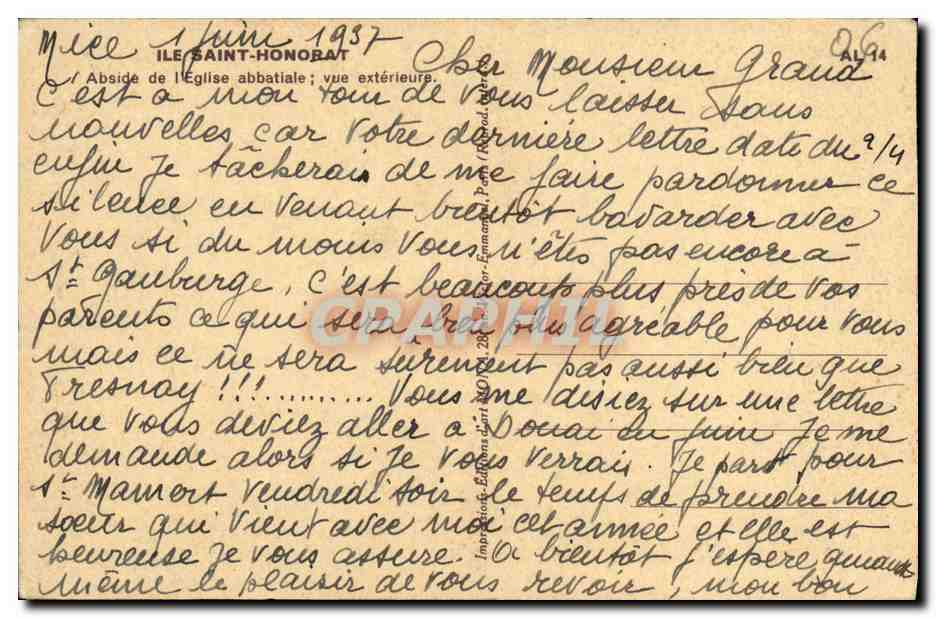 Nice 1 Juin 1937
ILE SAINT-HONORAT
AL 14
Abside de l'Église abbatiale ; vue extérieure.
Cher Monsieur Grand
C'est a mon tour de vous laisser sans
nouvelles car votre dernière lettre date du 9/4
enfin je tâcherais de me faire pardonner ce
silence en venant bientôt bavarder avec
vous si du moins vous n'êtes pas encore à
St Gauburge, c'est beaucoup plus près de vos
parents ce qui sera bien plus agréable pour vous
mais ce ne sera sûrement pas aussi bien que
Fresnay !!!............ Vous me disiez sur une lettre
que vous deviez aller à Douai en Juin je me
demande alors si je vous verrais. Je pars pour
St Mamert vendredi soir le temps de prendre ma
sœur qui vient avec moi cet année et elle est
heureuse je vous assure. A bientôt j'espère quand
même le plaisir de vous revoir, mon bon
CPARHIL